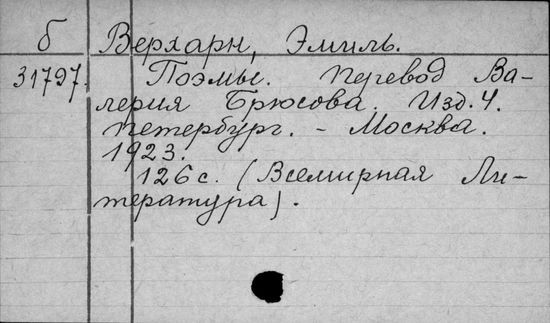 б Верхарн, Эмиль.
31797. Поэмы. Перевод Ва-
лерия Брюсова. Изд. 4.
Петербург. - Москва.
1923.
126 с. (Всемирная Ли-
тература).